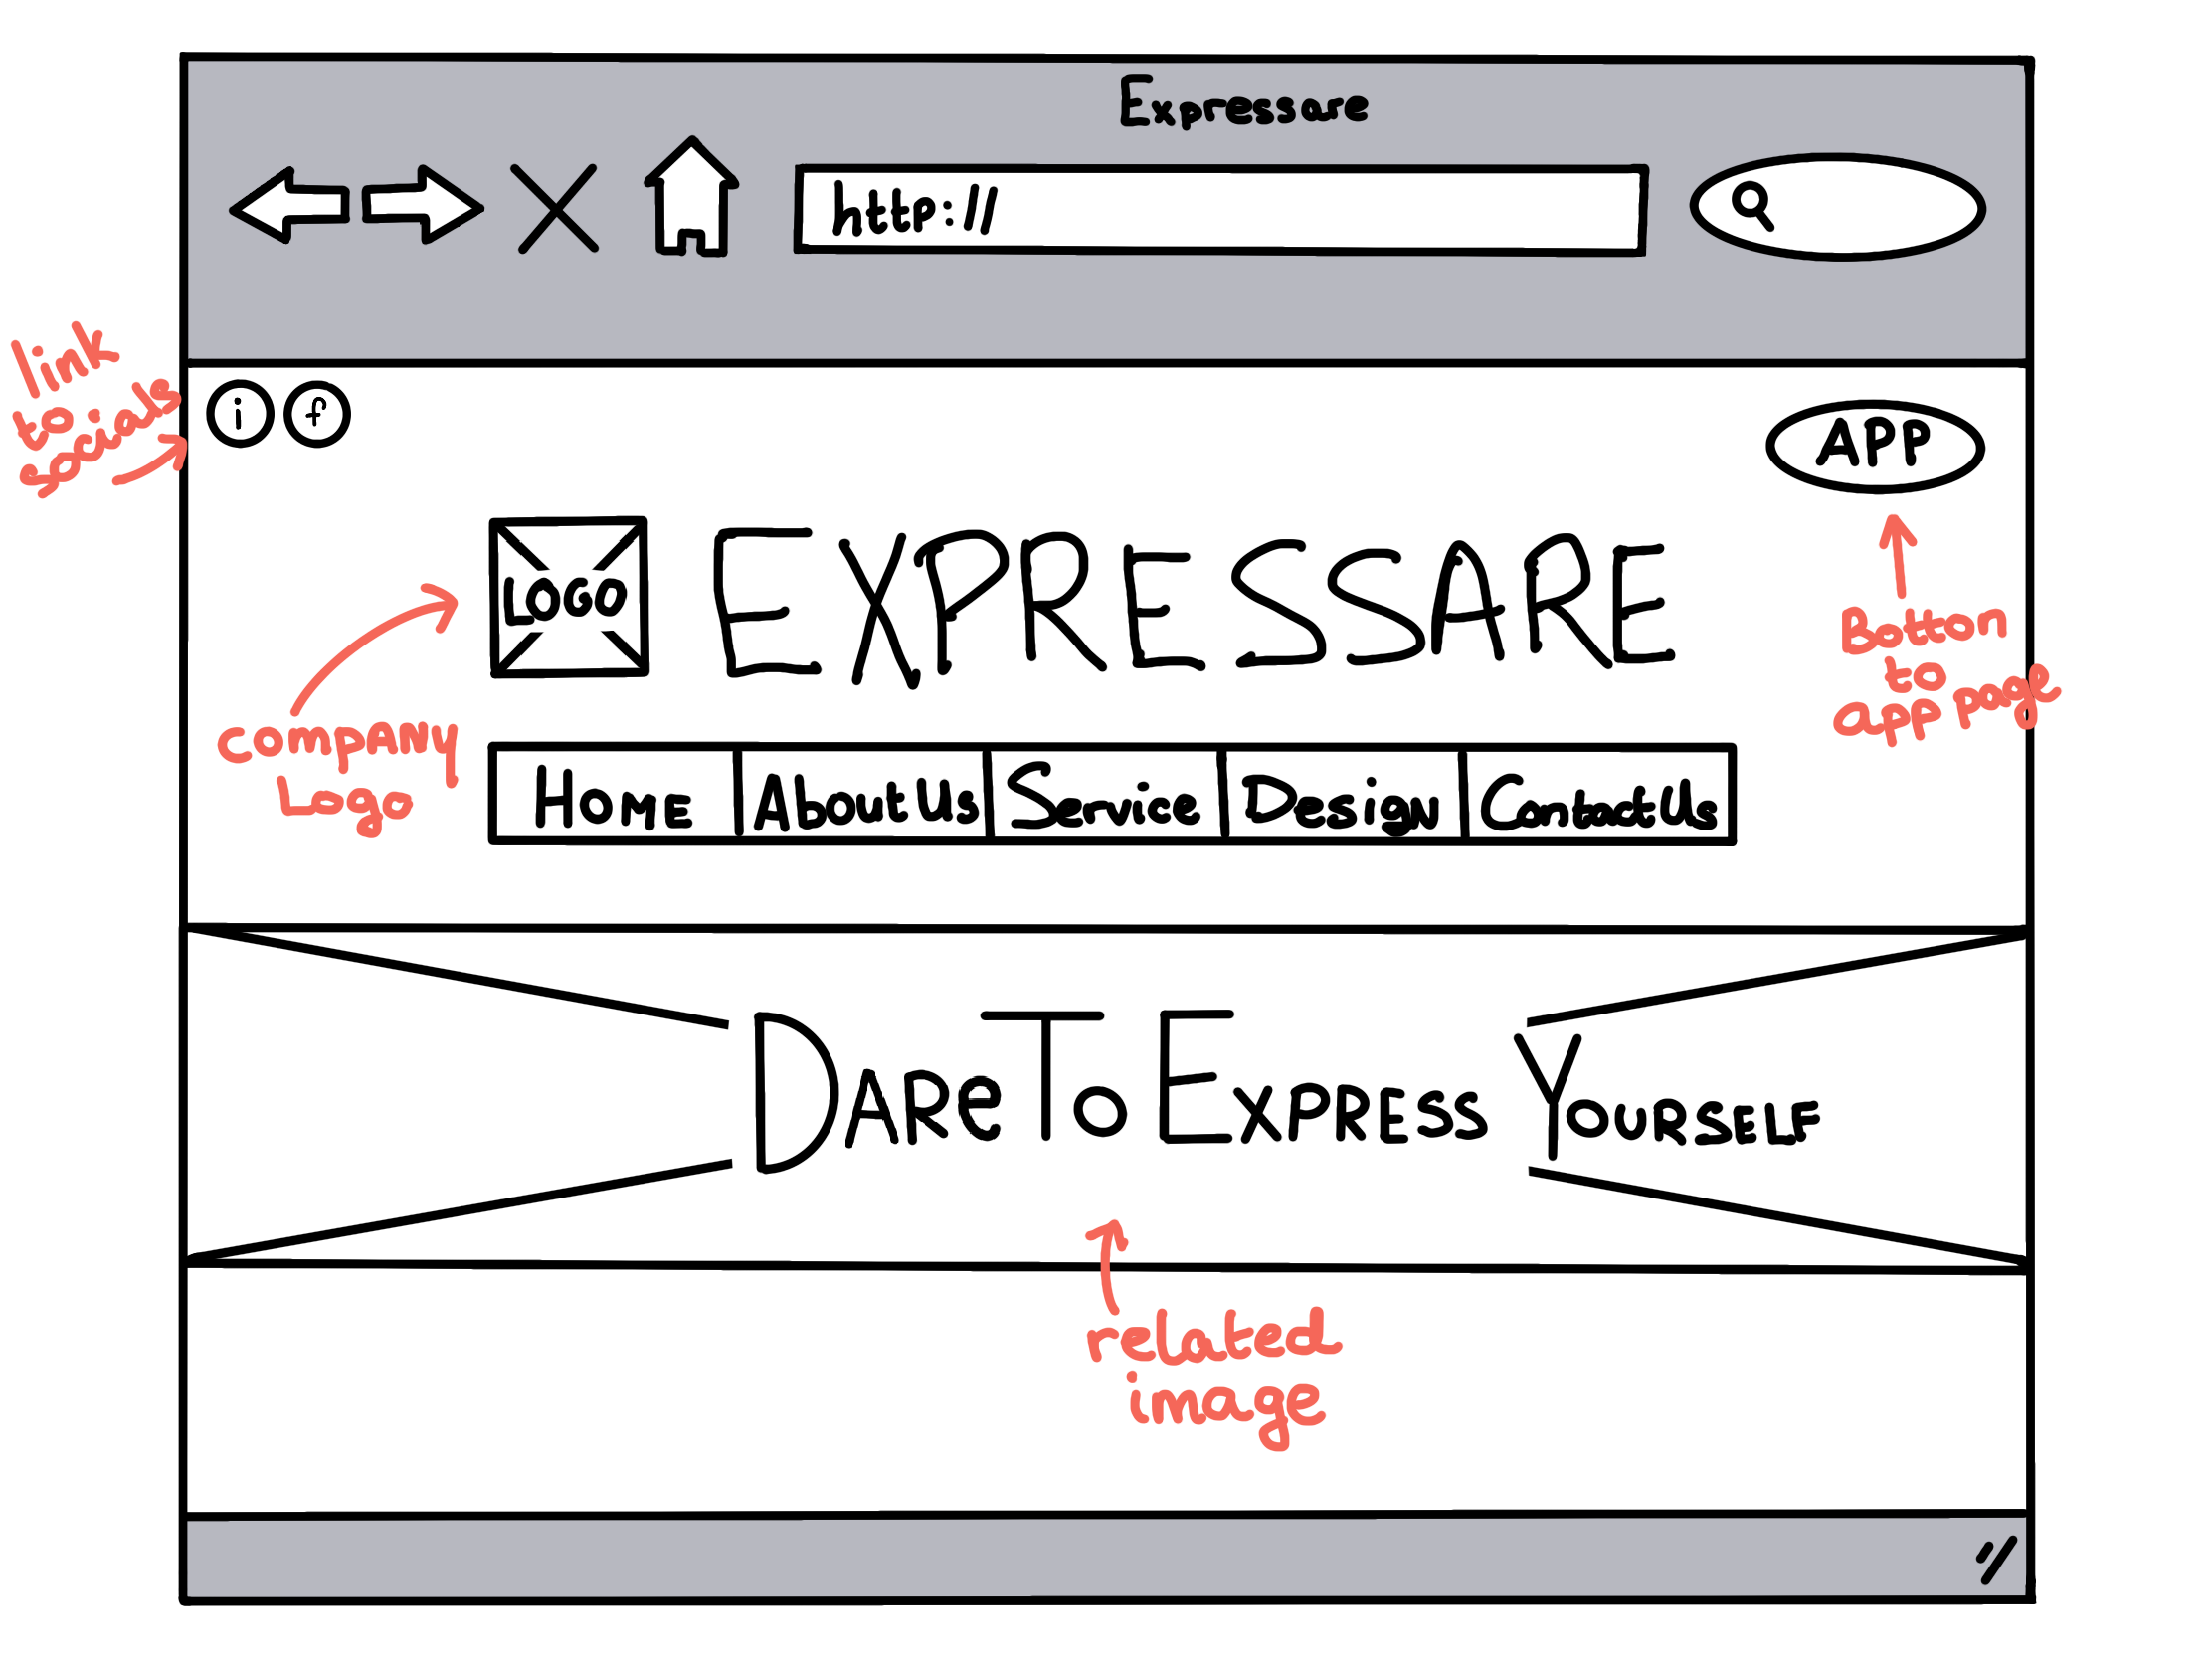 Expressare
http://
link
to
socials
i f
APP
LOGO EXPRESSARE
Botton
to
app page
COMPANY
Logo
HOME About Us Service Design Contact Us
DARe To EXPRESS YOURSELF
related
image